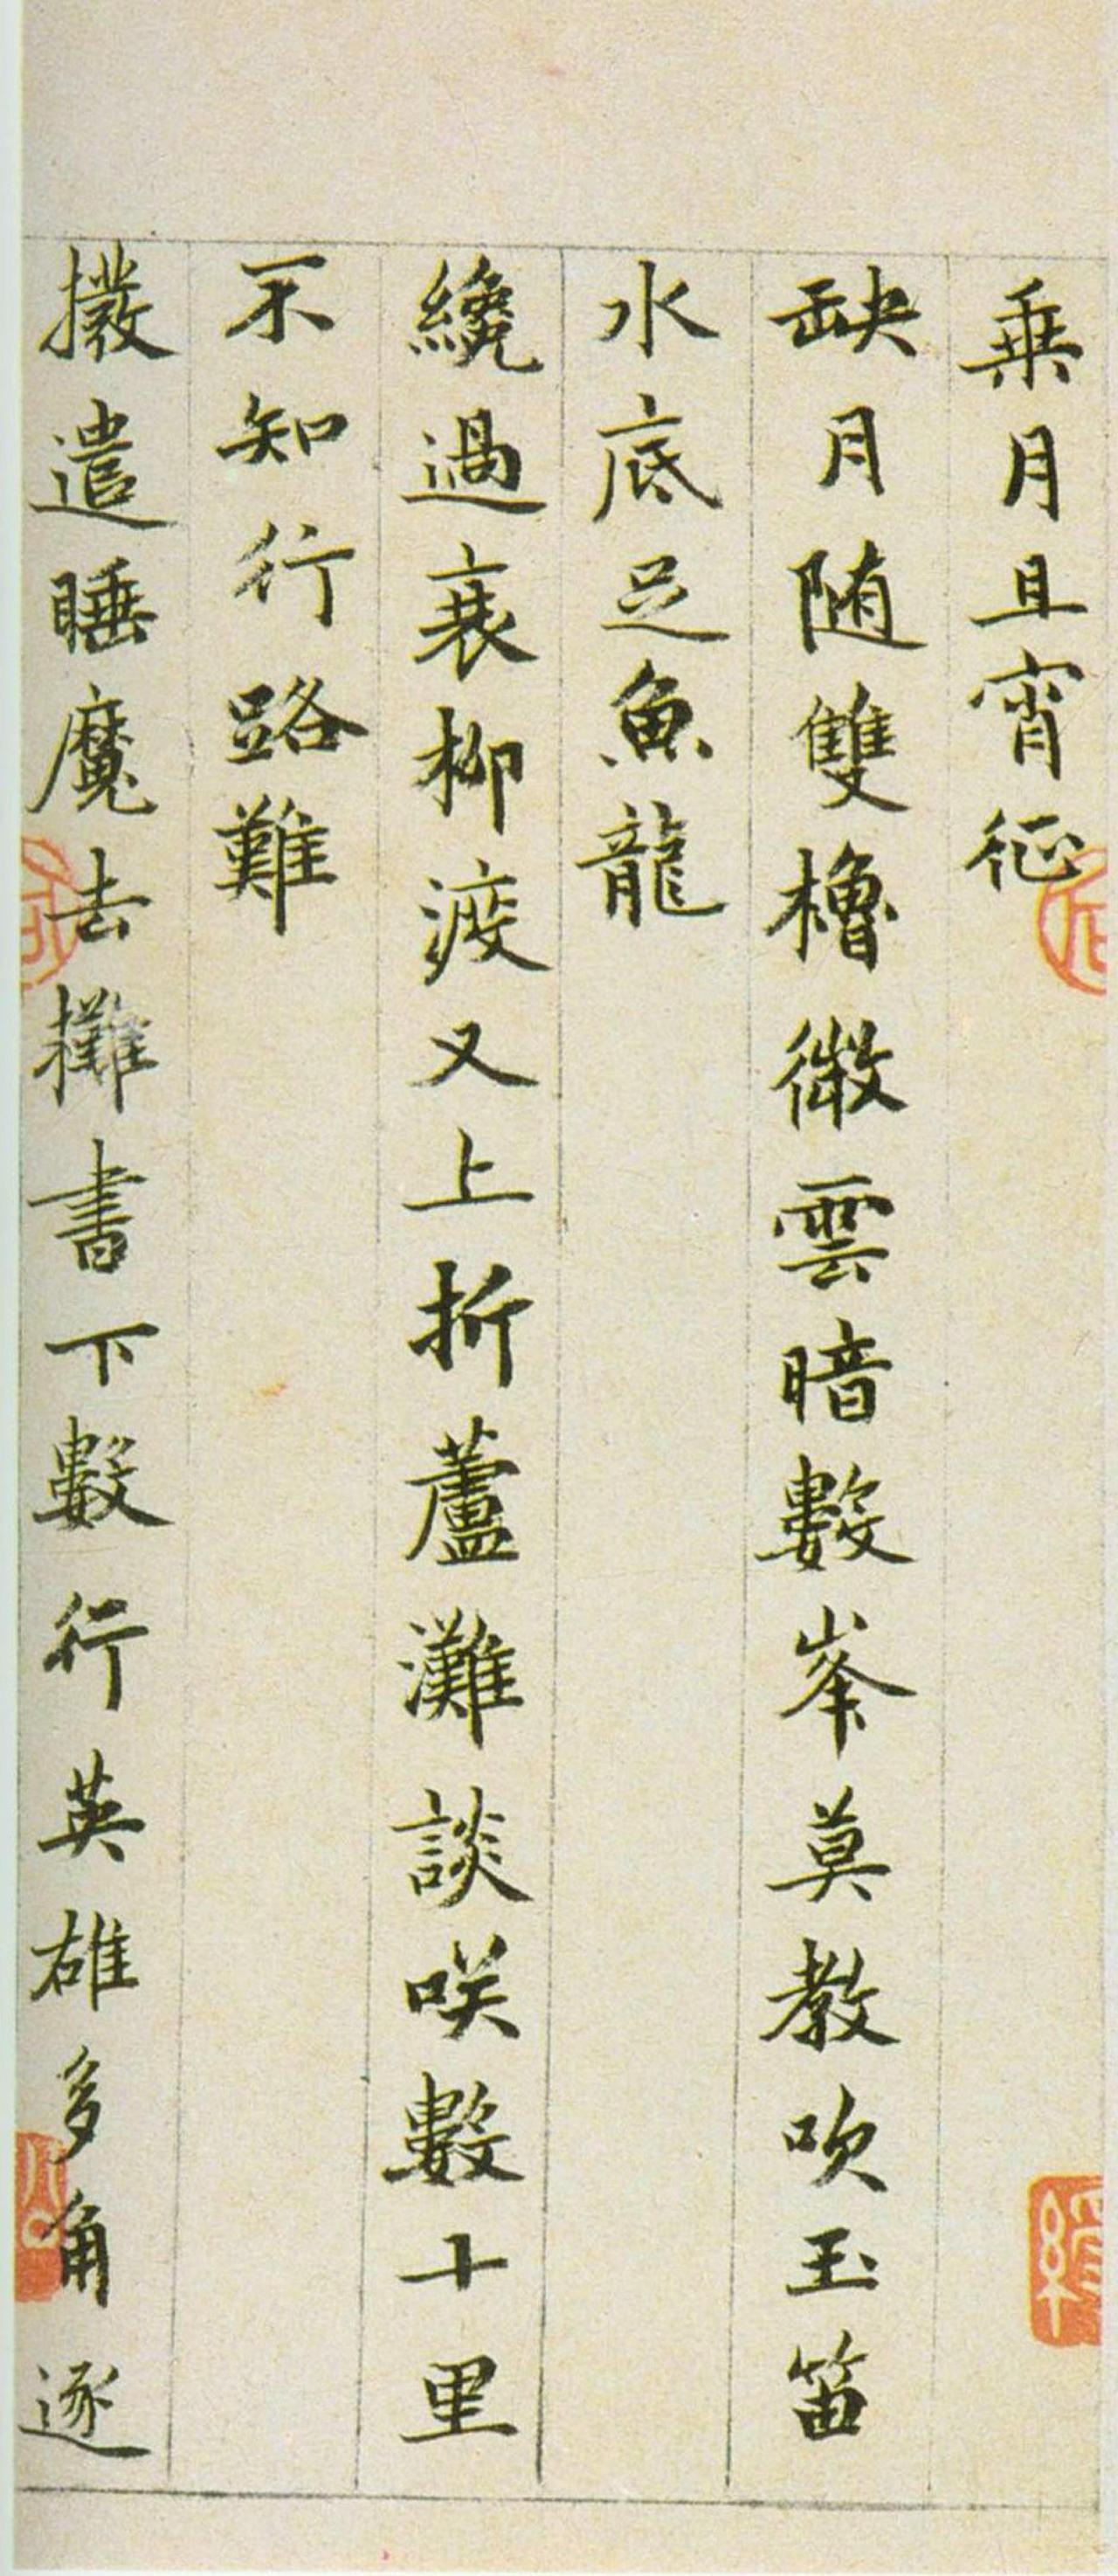 乗月且宵征
缺月随雙櫓微雲暗數峯莫教吹玉笛
水底足魚龍
纔過衰柳渡又上折蘆灘談咲數十里
不知行路難
撥遣睡魔去攤書下數行英雄多角逐